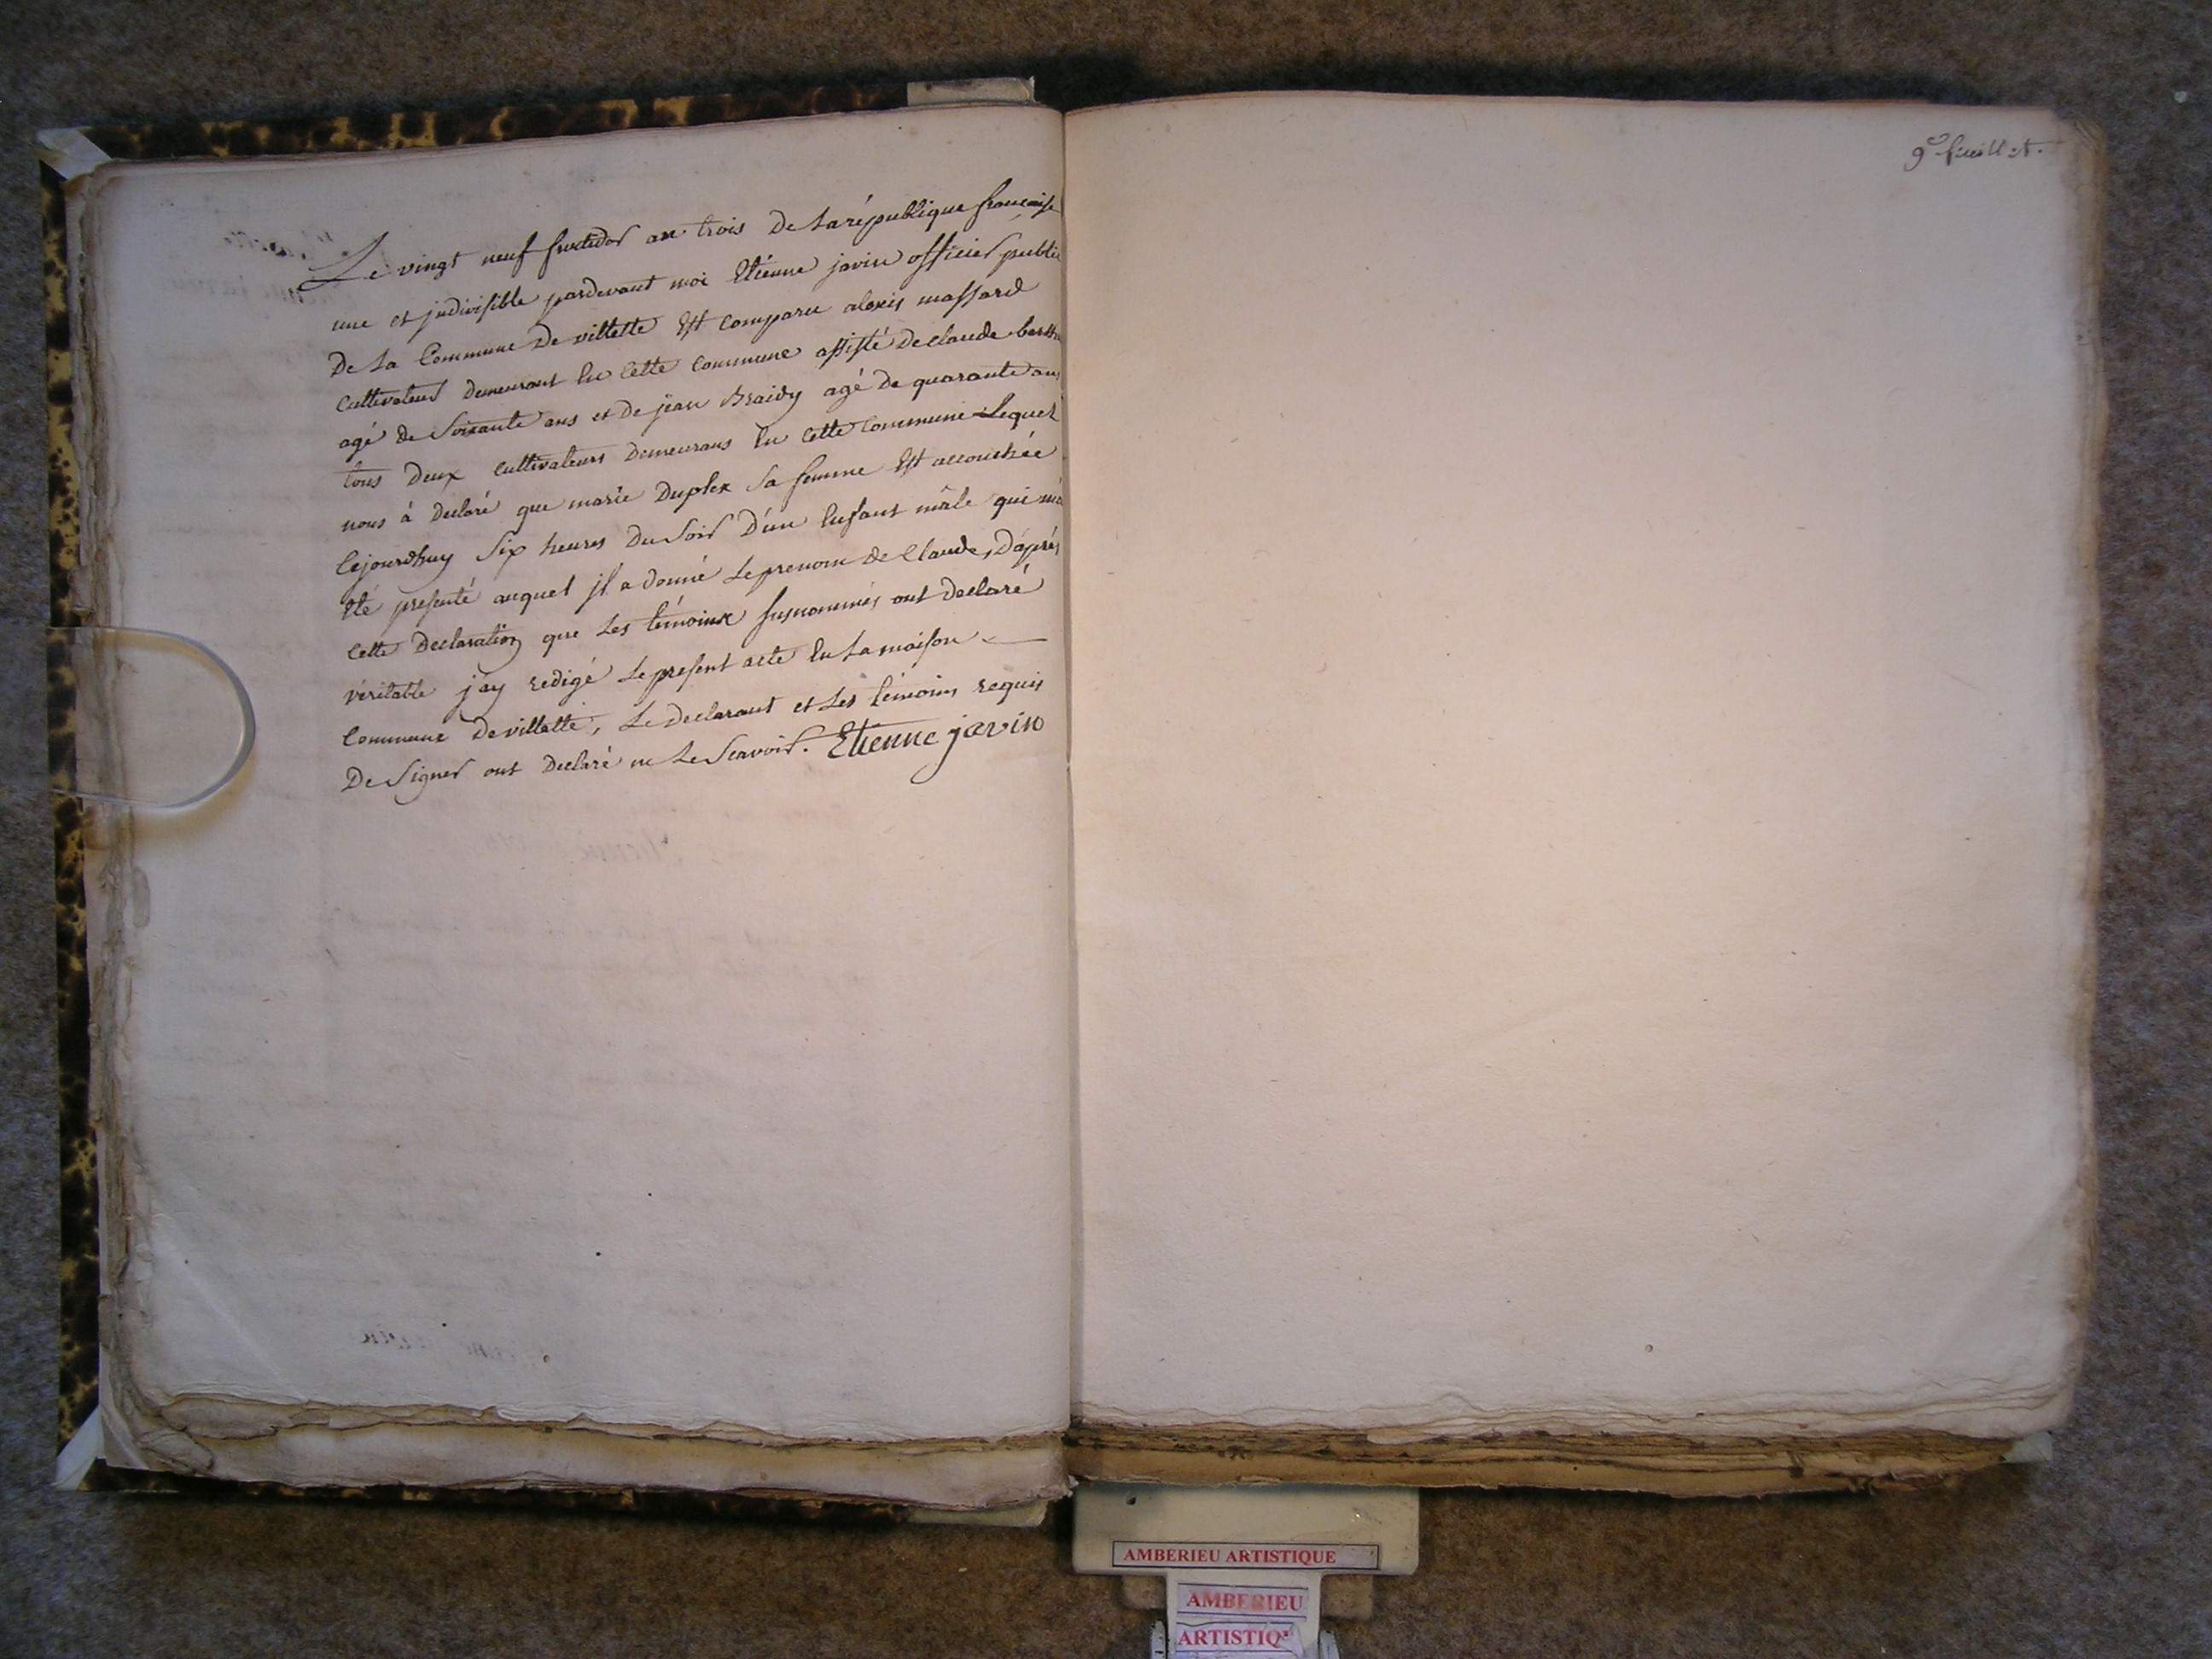 Le vingt neuf fructidor an trois De La république françoise
une et jndivisible pardevant moi Etiénne javin officier public
De La Commune De villette Est comparu alexis massard
cultivateur demeurant En Cette commune assisté De claude
agé de Soixante ans et De jean Braidy agé de quarante ans
tous Deux cultivateurs Demeurans En Cette Commune Lequel
nous à declaré que marie Duplex Sa femme Est accouchée
Cejourdhuy Six heures Du Soir D'un Enfant mâle qui m'a
Eté presenté auquel jl a donné Le prenom de Claude, D'après
Cette Declaration que Les témoins susnommés ont declaré
véritable j'ay redigé Le present acte En La maison
Commune De villette, Le Declarant et Les témoins requis
De Signer ont Declaré ne Le Scavoir. Etienne javin
9e feuillet.
AMBERIEU ARTISTIQUE
AMBERIEU
ARTISTIQ